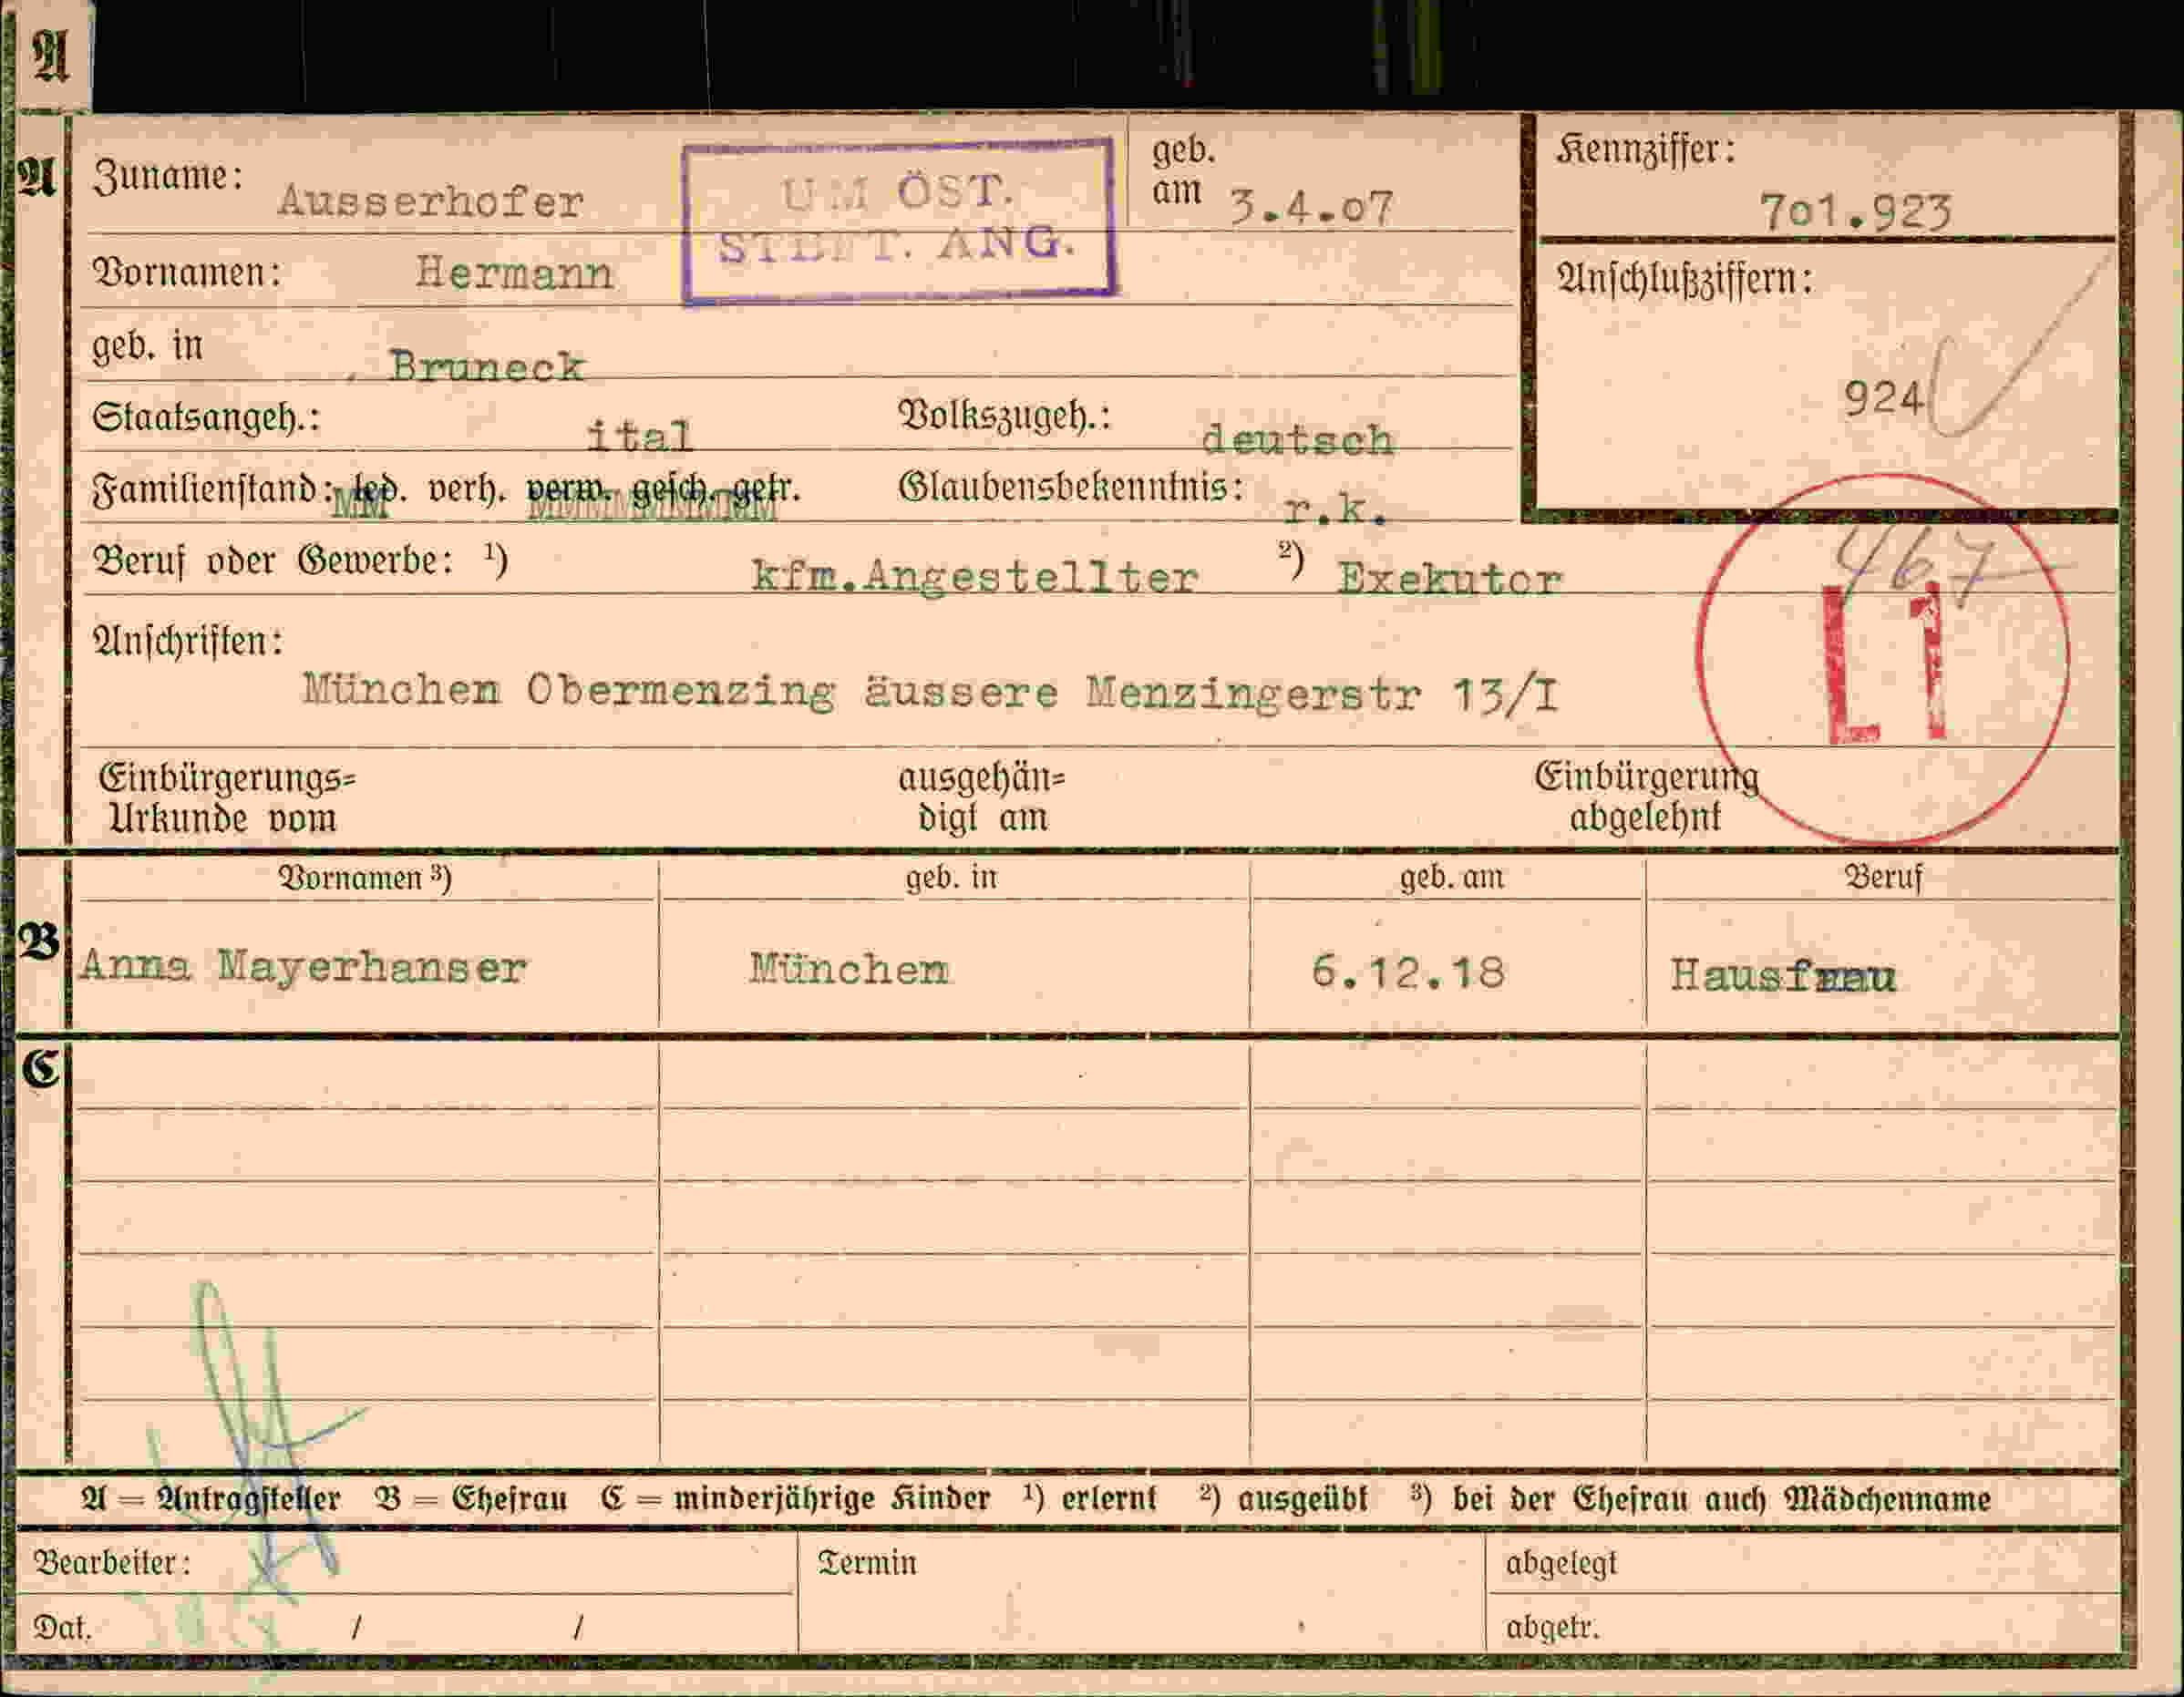 A
A
Zuname: Ausserhofer
UM ÖST.
STBFT. ANG.
geb.
am 3.4.07
Kennziffer:
701.923
Vornamen: Hermann
Anschlußziffern:
924
geb. in Bruneck
Staatsangeh.: ital Volkszugeh.: deutsch
Familienstand: led. verh. verw. gesch. getr. Glaubensbekenntnis: r.k.
467
Beruf oder Gewerbe: ¹) kfm.Angestellter ²) Exekutor
L1
Anschriften:
München Obermenzing äussere Menzingerstr 13/I
Einbürgerungs= ausgehän= Einbürgerung
Urkunde vom digt am abgelehnt
Vornamen ³) geb. in geb. am Beruf
B
Anna Mayerhanser München 6.12.18 Hausfrau
C
A = Antragsteller B = Ehefrau C = minderjährige Kinder ¹) erlernt ²) ausgeübt ³) bei der Ehefrau auch Mädchenname
Bearbeiter: Termin abgelegt
Dat. / / abgetr.